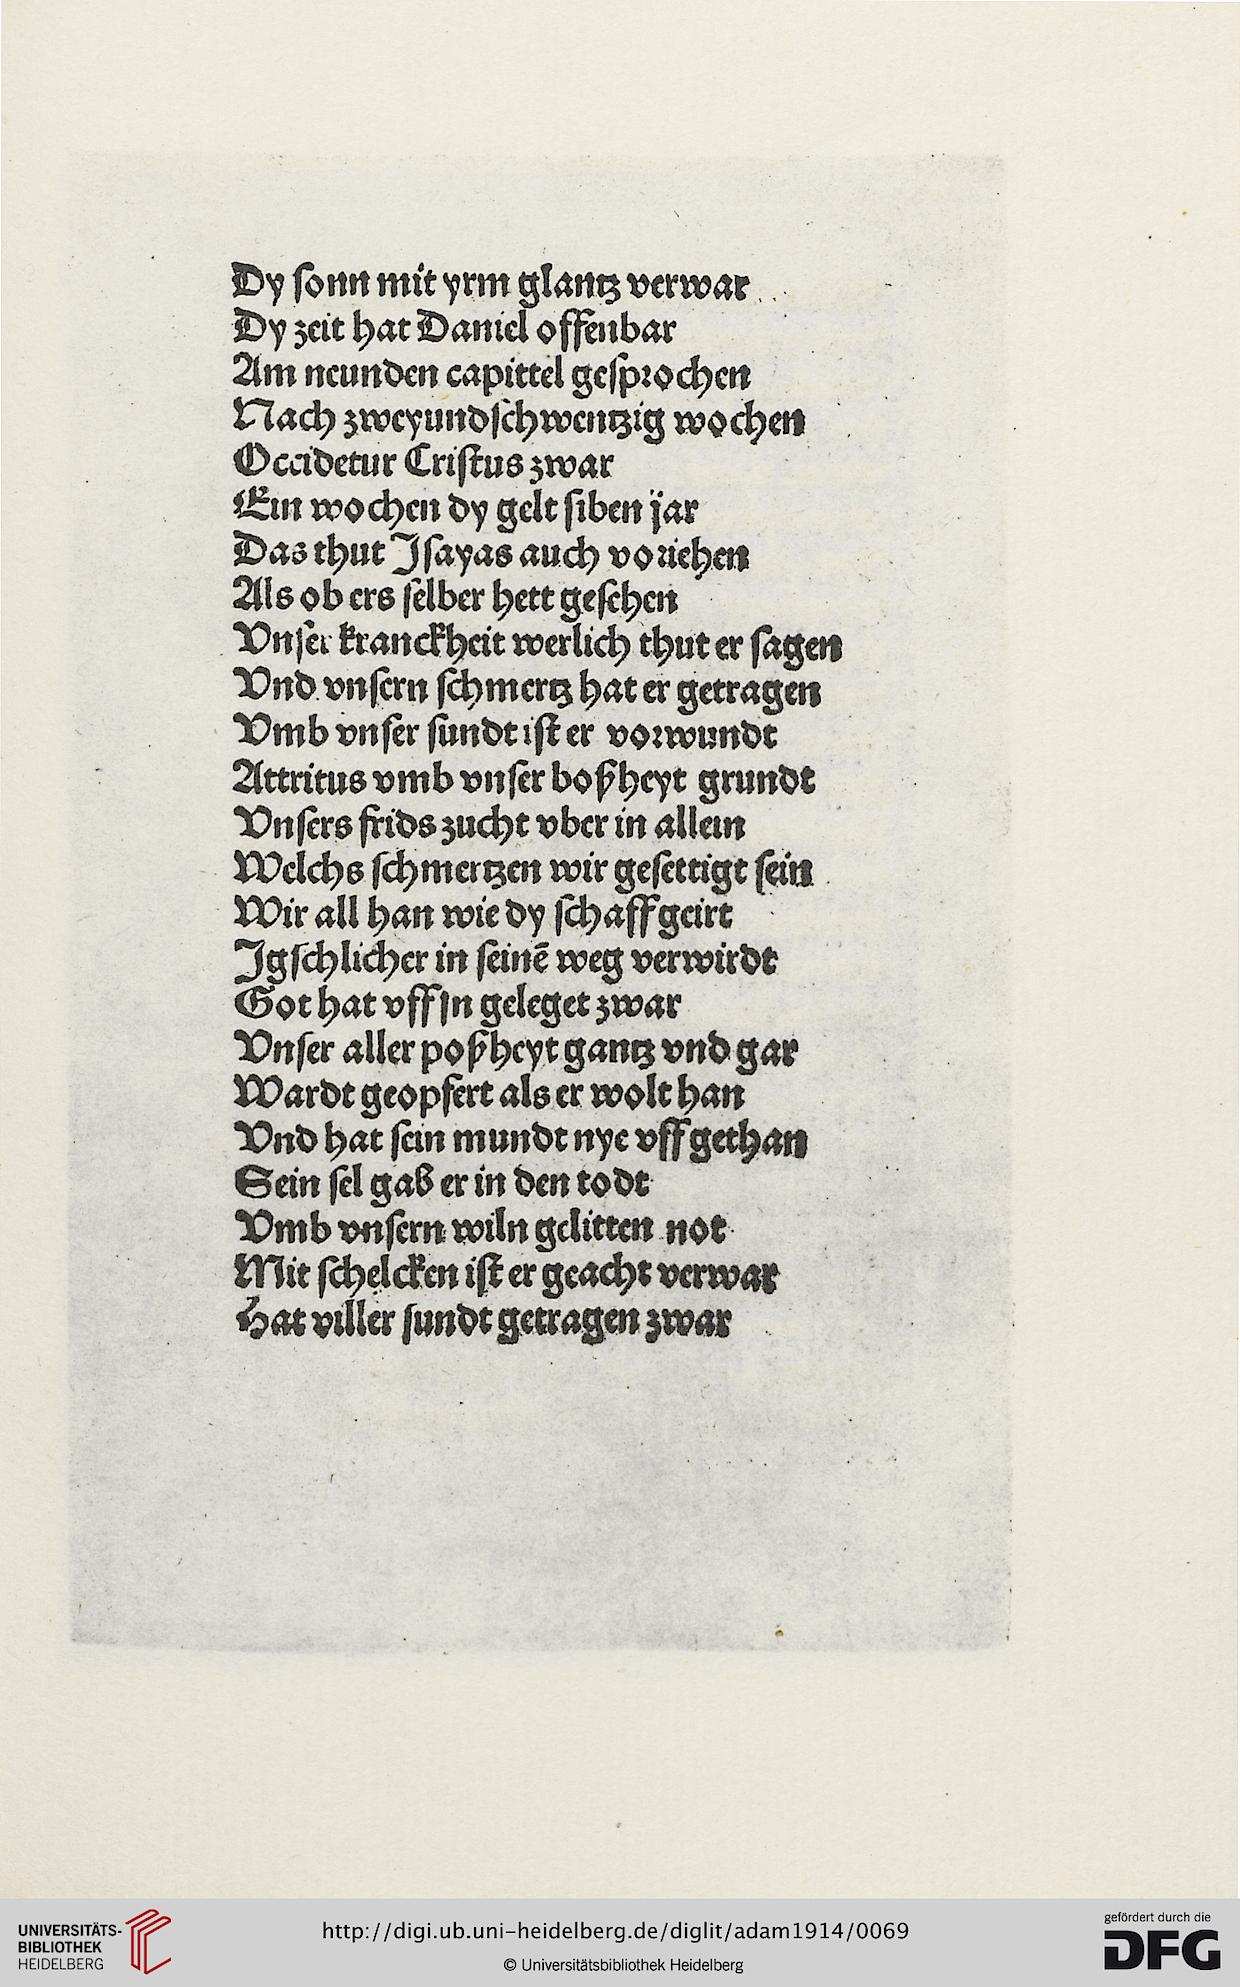 Dy ſonn mit yrm glantz verwar
Dy zeit hat Daniel offenbar
Am neunden capittel geſprochen
Nach zweyundſchwentzig wochen
Occidetur Criſtus zwar
Ein wochen dy gelt ſiben jar
Das thut Jſayas auch voriehen
Als ob ers ſelber hett geſehen
Vnſer kranckheit werlich thut er ſagen
Vnd vnſern ſchmertz hat er getragen
Vmb vnſer ſundt iſt er vorwundt
Attritus vmb vnſer boßheyt grundt
Vnſers frids zucht vber in allein
Welchs ſchmertzen wir geſettigt ſein
Wir all han wie dy ſchaff geirt
Jgſchlicher in ſeinē weg verwirdt
Got hat vff jn geleget zwar
Vnſer aller poßheyt gantz vnd gar
Wardt geopfert als er wolt han
Vnd hat ſein mundt nye vff gethan
Sein ſel gab er in den todt
Vmb vnſern wiln gelitten not
Mit ſchelcken iſt er geacht verwar
Hat viller ſundt getragen zwar
UNIVERSITÄTS-
BIBLIOTHEK
HEIDELBERG
http://digi.ub.uni-heidelberg.de/diglit/adam1914/0069
© Universitätsbibliothek Heidelberg
gefördert durch die
DFG